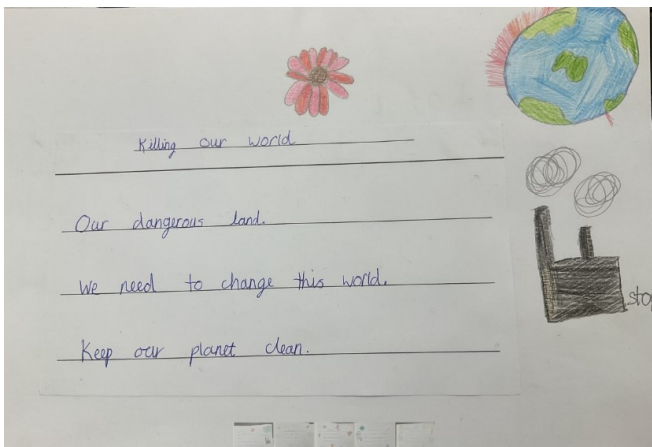 Killing our world
Our dangerous land.
We need to change this world.
Keep our planet clean.